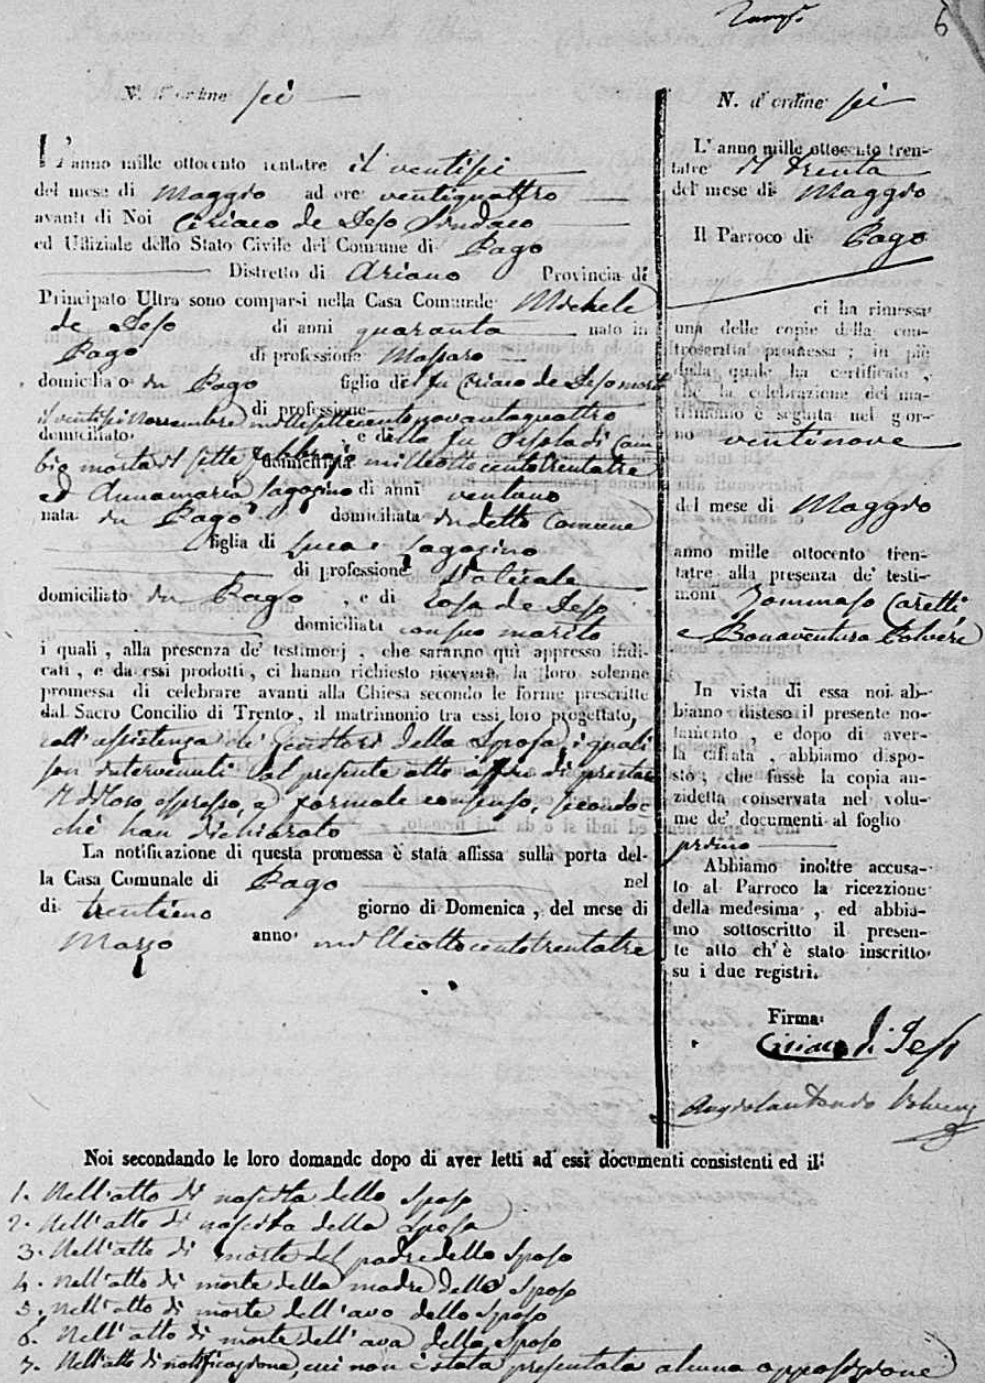 6
N. d'ordine sei
L'anno mille ottocento trentatre il ventisei
del mese di Maggio ad ore ventiquattro
avanti di Noi Ciriaco de Jeso Sindaco
ed Uffiziale dello Stato Civile del Comune di Pago
Distretto di Ariano Provincia di
Principato Ultra sono comparsi nella Casa Comunale Michele
de Jeso di anni quaranta nato in
Pago di professione Massaro
domiciliato in Pago figlio del fu Ciriaco de Jeso morto
il ventisei Novembre di professione millesettecentonovantaquattro
domiciliato e della fu
morta il sette Febbrajo domiciliata milleottocentotrentatre
ed Annamaria Pagosino di anni ventuno
nata in Pago domiciliata in detto Comune
figlia di Luca Pagosino
di professione
domiciliato in Pago , e di Rosa de Jeso
domiciliata con suo marito
i quali , alla presenza de' testimonj , che saranno quì appresso indi-
cati , e da essi prodotti , ci hanno richiesto ricevere la loro solenne
promessa di celebrare avanti alla Chiesa secondo le forme prescritte
dal Sacro Concilio di Trento, il matrimonio tra essi loro progettato,
coll'assistenza de' Genitori della Sposa, i quali
son intervenuti al presente atto affin di prestare
il di loro espresso, e formale consenso, secondoc
chè han dichiarato
La notificazione di questa promessa è stata affissa sulla porta del-
la Casa Comunale di Pago nel
di trentuno giorno di Domenica , del mese di
Marzo anno milleottocentotrentatre
N. d'ordine sei
L' anno mille ottocento tren-
tatre il trenta
del mese di Maggio
Il Parroco di Pago
ci ha rimessa
una delle copie della con-
troscritta promessa ; in piè
della quale ha certificato ,
che la celebrazione del ma-
trimonio è seguita nel gior-
no ventinove
del mese di Maggio
anno mille ottocento tren-
tatre alla presenza de' testi-
moni Tommaso Caretti
e Bonaventura Polvere
In vista di essa noi ab-
biamo disteso il presente no-
tamento , e dopo di aver-
la cifrata , abbiamo dispo-
sto , che fusse la copia an-
zidetta conservata nel volu-
me de' documenti al foglio
primo
Abbiamo inoltre accusa-
to al Parroco la ricezzione
della medesima , ed abbia-
mo sottoscritto il presen-
te atto ch' è stato inscritto
su i due registri.
Firma:
Ciriaco di Jeso
Noi secondando le loro domande dopo di aver letti ad essi documenti consistenti ed il:
1. Nell'atto di nascita dello Sposo
2. Nell'atto di nascita della Sposa
3. Nell'atto di morte del padre dello Sposo
4. Nell'atto di morte della madre dello Sposo
5. Nell'atto di morte dell'avo dello Sposo
6. Nell'atto di morte dell'ava dello Sposo
7. Nell'atto di notificazione, cui non è stata presentata alcuna opposizione